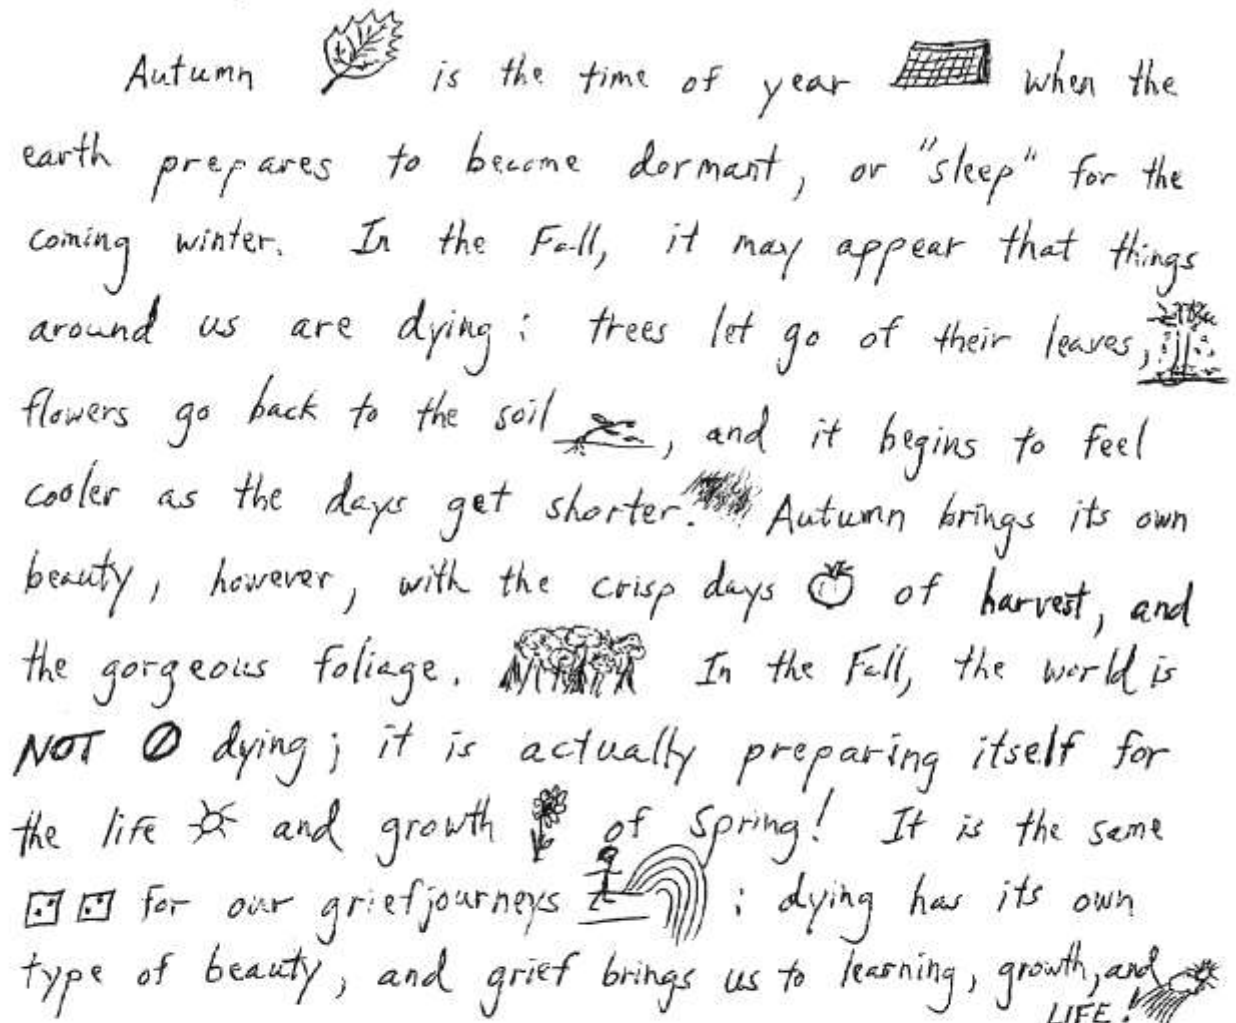 Autumn is the time of year when the
earth prepares to become dormant, or "sleep" for the
coming winter. In the Fall, it may appear that things
around us are dying: trees let go of their leaves,
flowers go back to the soil, and it begins to feel
cooler as the days get shorter. Autumn brings its own
beauty, however, with the crisp days of harvest, and
the gorgeous foliage. In the Fall, the world is
NOT dying; it is actually preparing itself for
the life and growth of Spring! It is the same
for our grief journeys: dying has its own
type of beauty, and grief brings us to learning, growth, and
LIFE!